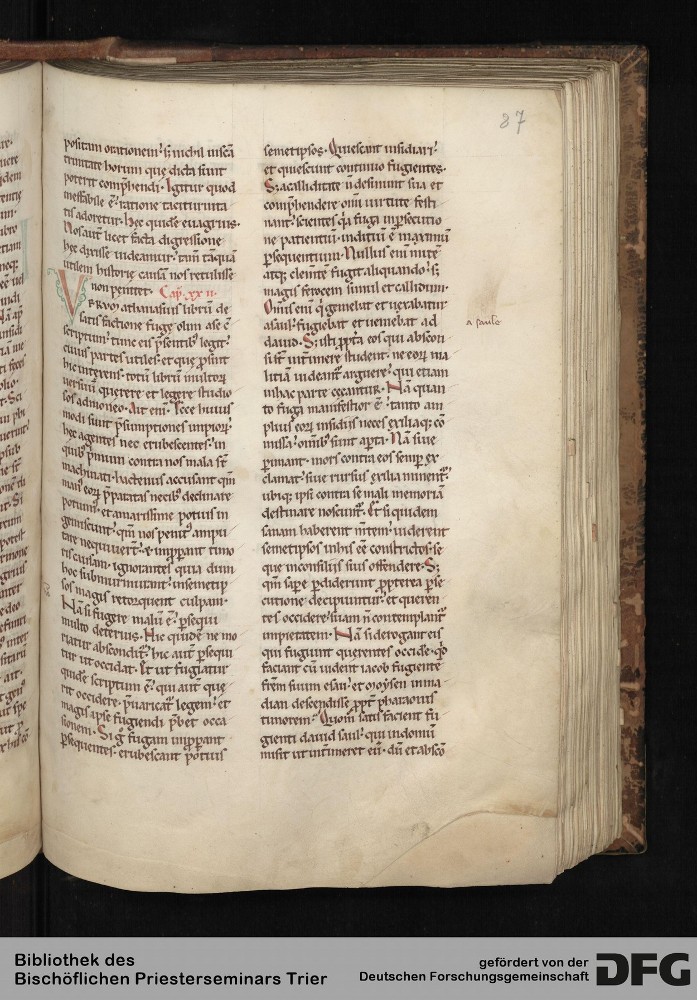 87
positam orationem. s; nichil in sc̄a
trinitate horum que dicta sunt
poterit comp̄hendi. Igitur quod
ineffabile ē. ratione taciturnita
tis adoretur. hec quidē euagrius.
Nos aut̄ licet facta digressione
hec dixisse uideamur. tam̄ tāquā
utilem historie causā nos retulisse
non penitet. Cap. xx ii.
VERVM athanasius librū de
satisfactione fuge olim a se ē
scriptum. tunc eis p̄sentib; legit.
cuius partes utiles. et que p̄sunt
hic inserens. totū librū multorū
uersuū querere et legere studio
sos admoneo. Ait enī. Ecce huius
modi sunt p̄sumptiones impiorū.
hec agentes nec erubescentes. in
quib; p̄mum contra nos mala st̄
machinati. hactenus accusant qm̄
man; eorū p̄paratas necib; declinare
potuim; et amarissime potius in
gemiscunt. qm̄ nos penit; ampu
tare nequiuert̄. & imp̄pant timo
ris causam. ignorantes quia dum
hoc submurmurant. in semetip
sos magis retorquent culpam.
Nā si fugere malū ē. p̄sequi
multo deterius. Hic quidē ne mo
riatur abscondit̄. hic aut̄ p̄sequi
tur ut occidat. Et ut fugiatur
quidē scriptum ē. qui aut̄ que
rit occidere. p̄uaricat̄ legem. et
magis ipse fugiendi p̄bet occa
sionem. Si g° fugam imp̄pant
p̄sequentes. erubescant potius
semetipsos. Quiescant insidiari.
et quiescunt continuo fugientes.
S; a calliditate n̄ desinunt sua et
comp̄hendere omī uirtute festi
nant. scientes q̄a fuga in p̄secutio
ne patientiū. indiciū ē maximū
p̄sequentium. Nullus enī mitē
atq; clemtē fugit. aliquando. s;
magis ferocem simul et callidum.
Omīs enī q̄ gemebat et uexabatur
a saul. fugiebat et ueniebat ad
dauid. S; isti p̄pt̄a eos qui abscon
si st̄ int̄imere student. ne eorū ma
litiā uideant̄ arguere. qui etiam
in hac parte cecantur. Nā quan
to fuga manifestior ē. tanto am
plius eorū insidiis neces exiliaq; cō
missa. omīb; sunt apta. Nā siue
p̄imant. mors contra eos semp̄ ex
clamat. siue rursus exilia minent̄.
ubiq; ipsi contra se mali memoriā
destinare noscunt̄. Et siquidem
sanam haberent m̄tem. uiderent
semetipsos in his eē constrictos. se
que in consiliis suis offendere. S;
qm̄ sap̄e p̄diderunt p̄pterea p̄se
cutione decipiunt̄. et queren
tes occidere. suam n̄ contemplant̄
impietatem. Nā si derogant eis
qui fugiunt querentes occide. q̄d
faciant cū uident iacob fugiente
frēm suum esau. et moysen in ma
dian descendisse. p̄pt̄ pharaonis
timorem. Quom̄ satis facient fu
gienti dauid saul. qui in domū
misit ut int̄imeret eū. dū et absco
a saule
Bibliothek des
Bischöflichen Priesterseminars Trier
gefördert von der
Deutschen Forschungsgemeinschaft
DFG